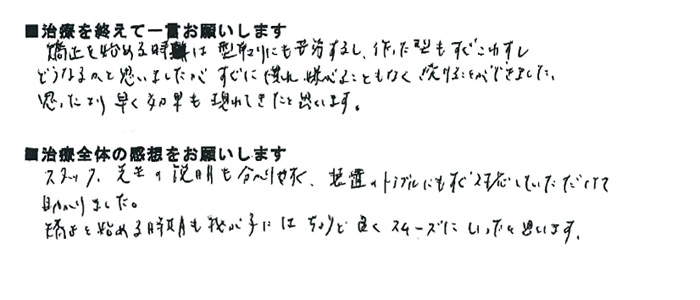 ■治療を終えて一言お願いします
矯正を始める時期は型取りにも苦労するし、作った型もすぐこわすし
どうなるかと思いましたが すぐに慣れ 嫌がることもなく続けることができました。
思ったより早く効果も現れてきたと思います。
■治療全体の感想をお願いします
スタッフ、先生の説明も分かりやすく、装置のトラブルにもすぐ対応していただけて
助かりました。
矯正を始める時期も我が子にはちょうど良くスムーズにいったと思います。